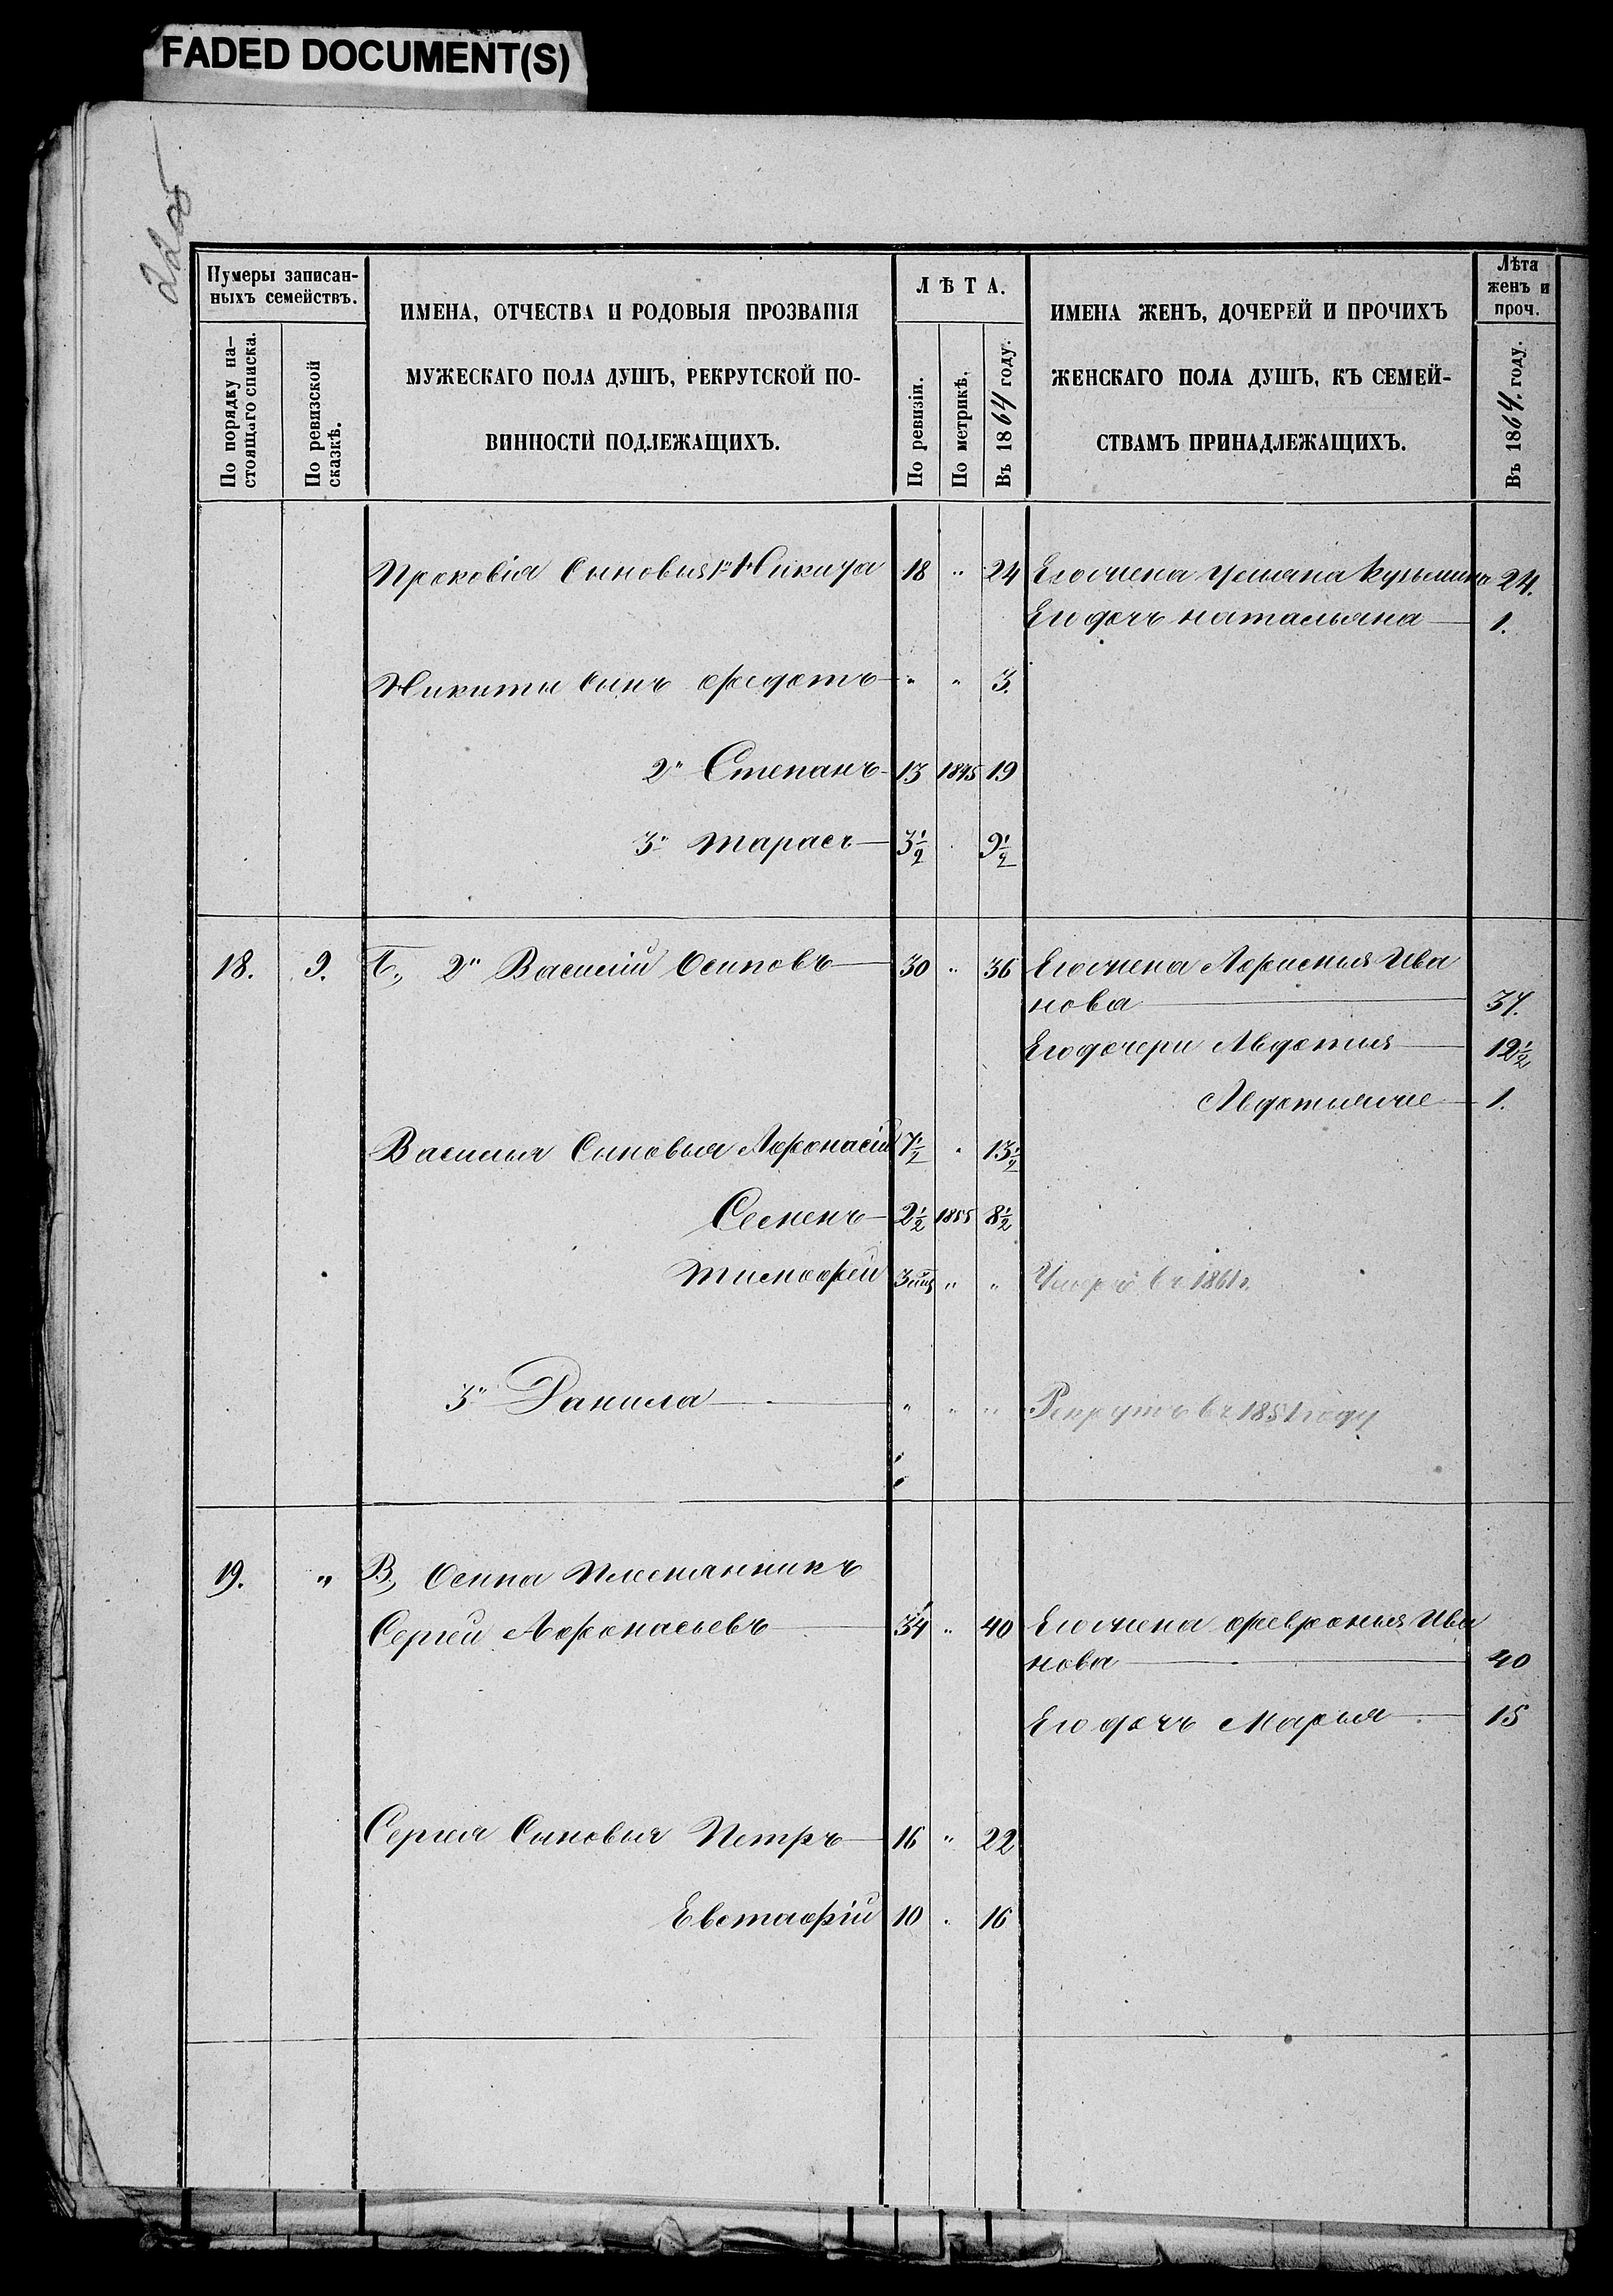 FADED DOCUMENT(S)
Нумеры записан-
ныхъ семействъ.
По порядку на-
стоящаго списка.
По ревизской
сказкѣ.
ИМЕНА, ОТЧЕСТВА И РОДОВЫЯ ПРОЗВАНІЯ
МУЖЕСКАГО ПОЛА ДУШЪ, РЕКРУТСКОЙ ПО-
ВИННОСТИ ПОДЛЕЖАЩИХЪ.
ЛѢТА.
По ревизіи.
По метрикѣ.
Въ 1864 году.
ИМЕНА ЖЕНЪ, ДОЧЕРЕЙ И ПРОЧИХЪ
ЖЕНСКАГО ПОЛА ДУШЪ, КЪ СЕМЕЙ-
СТВАМЪ ПРИНАДЛЕЖАЩИХЪ.
Лѣта
женъ и
проч.
Въ 1864. году.
Прокофія Сыновья 1й Никита 18 " 24 Его жена Ульяна Кузьмина 24.
Его дочь Наталья 1.
Никиты Сынъ Федотъ " " 3.
2й Степанъ 13 1845 19
3й Тарасъ 3½ 9½
18. 9. Б, 2й Василій Осиповъ 30 " 36 Его жена Афимья Ива
нова 37.
Его дочери Авдотья 12½
Авдотья же 1.
Василья Сыновья Афонасій 7½ " 13½
Семенъ 2½ 1855 8½
Тимофей 3 " " Умеръ въ 1861 г.
3й Данила " " " Рекрутъ въ 1851 году
19. " В, Осипа Племянникъ
Сергей Афонасьевъ 34 " 40 Его жена Февронья Ива
нова 40
Его дочь Марья 15
Сергея Сыновья Петръ 16 " 22
Евстафій 10 " 16